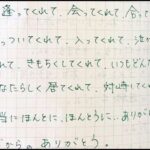 逢ってくれて、会ってくれて、合って
っついてくれて、入ってくれて、泣か
れて、きもちくしてくれて、いつもどん
なたらしく居てくれて、対峙してくれ
当にほんとに、ほんとうに、ありが
から。ありがとう。